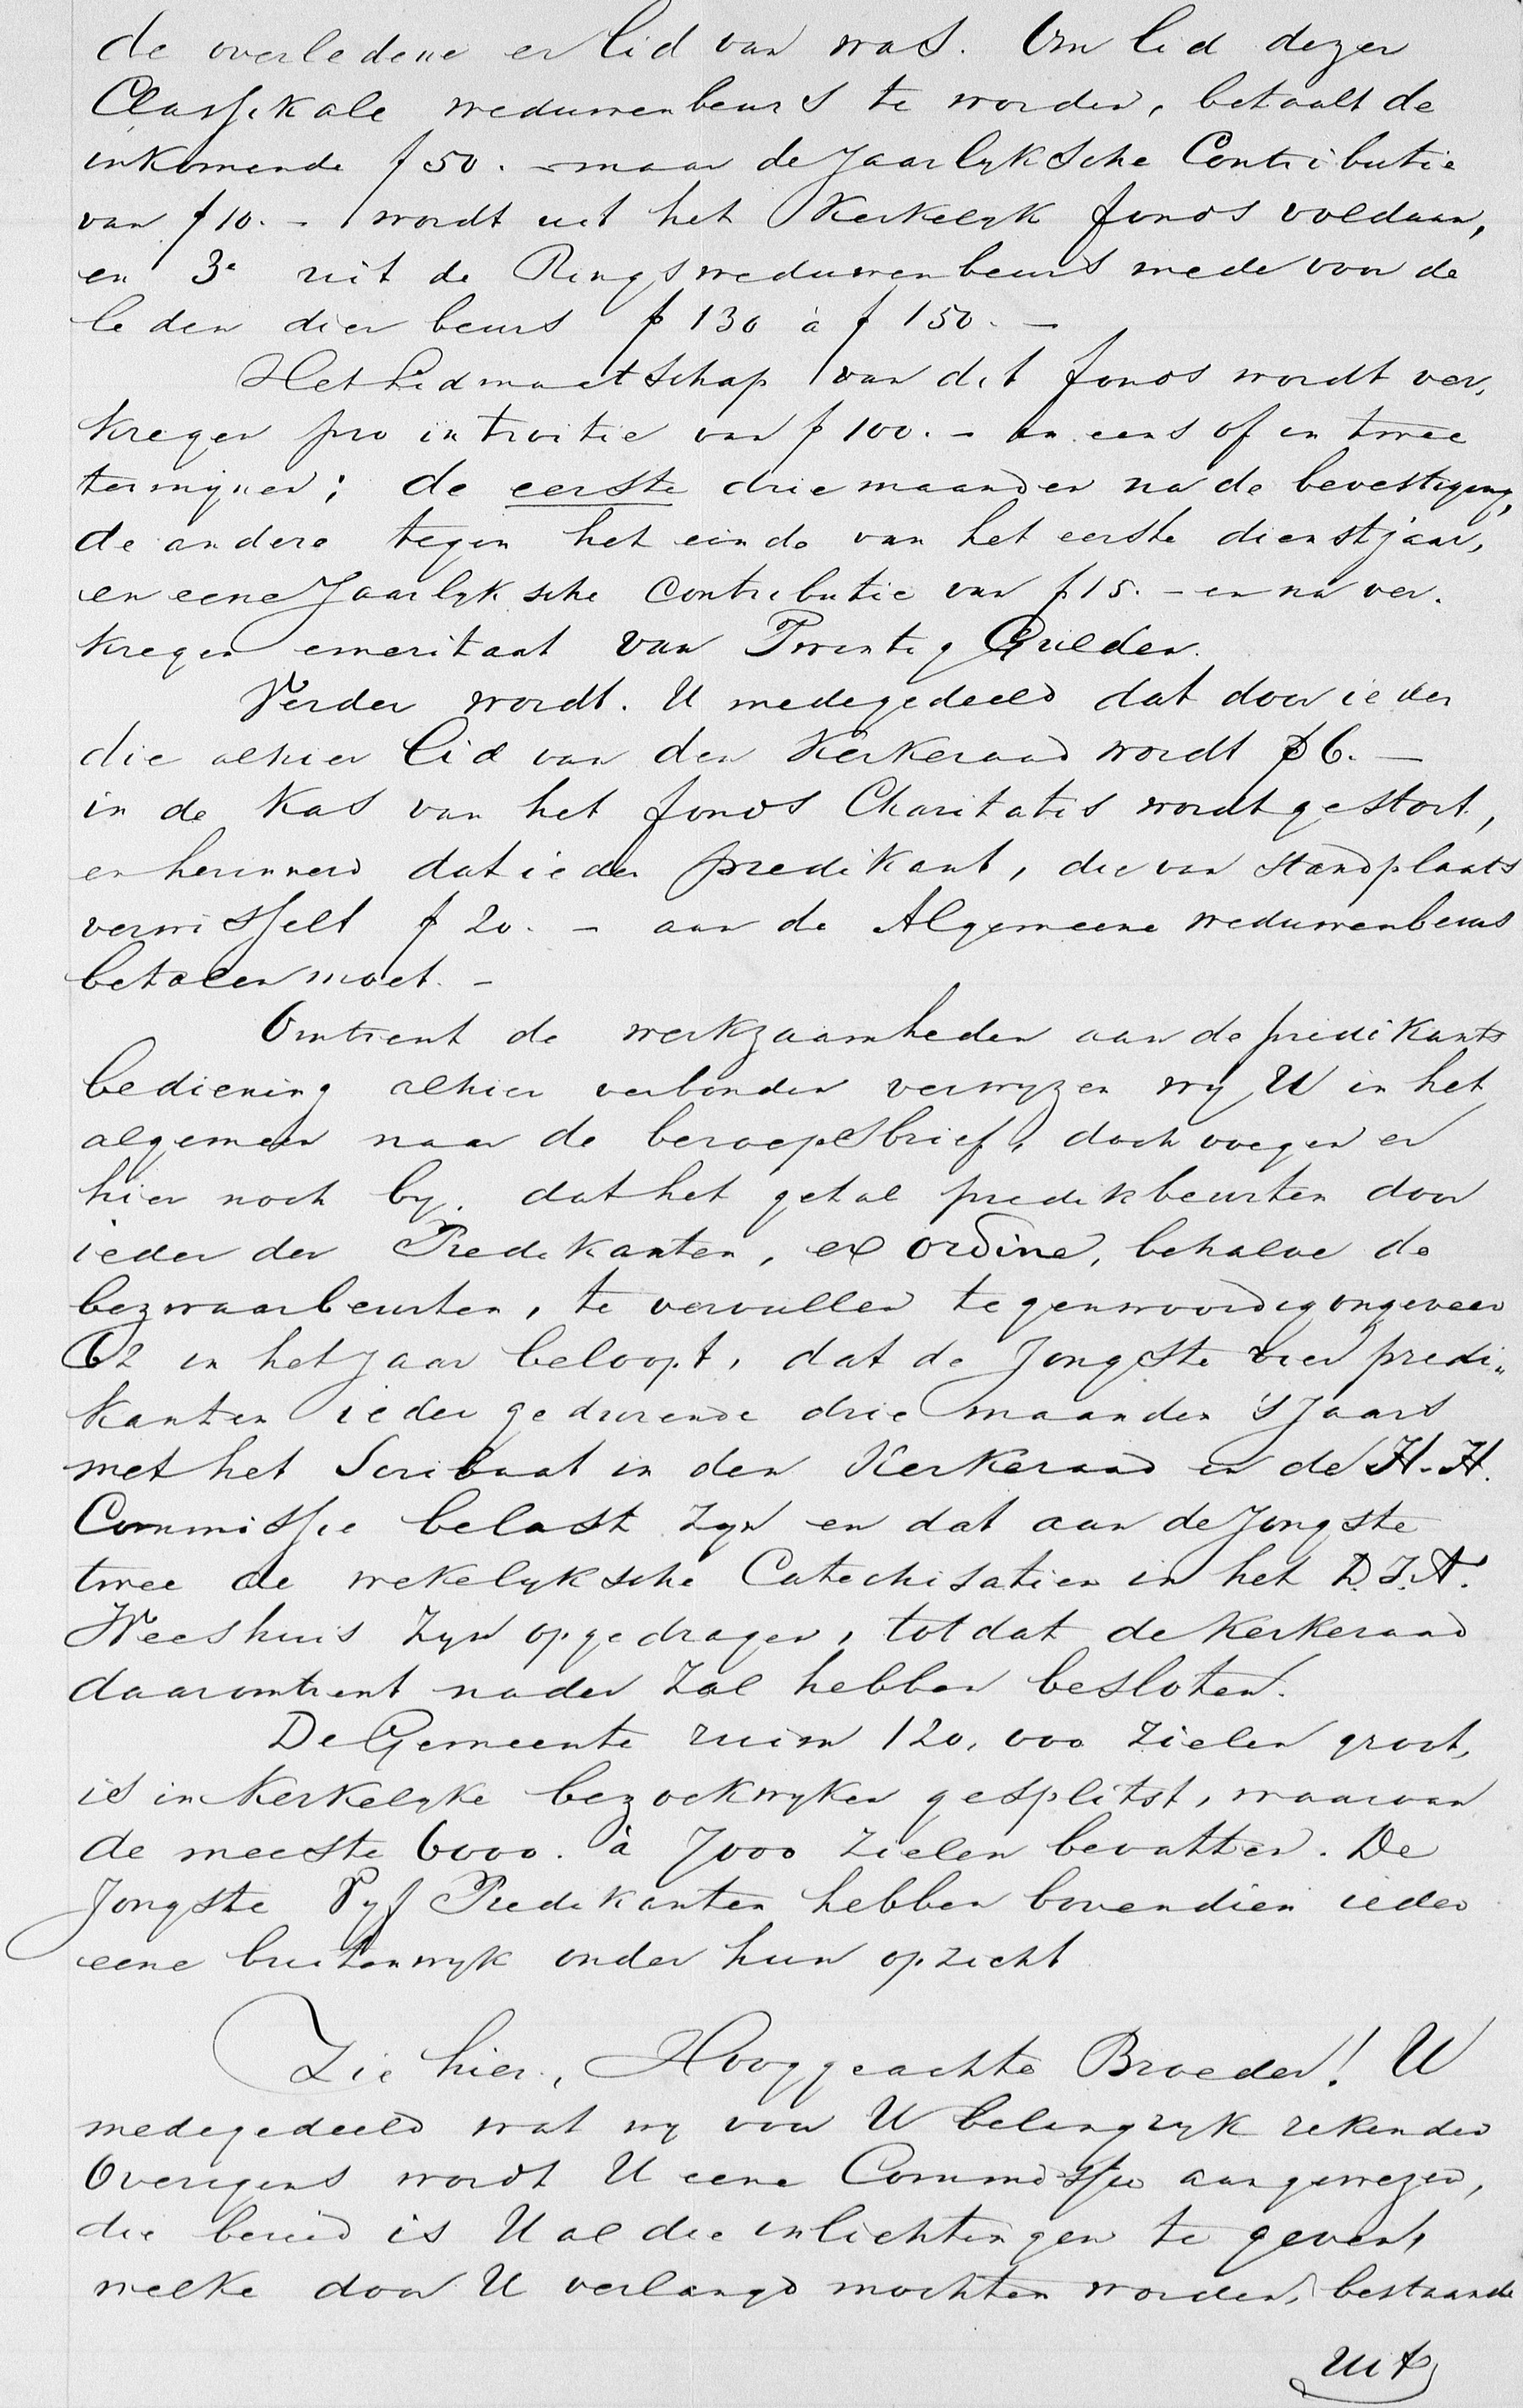 de overledene er lid van was. Om lid dezer
Classikale weduwenbeurs te worden, betaalt de
inkomende f 50. – maar de Jaarlyksche Contributie
van f 10. – wordt uit het Kerkelyk fonds voldaan,
en 3e uit de Ringsweduwenbeurs mede voor de
leden dier beurs f 130 à f 150. –
Het Lidmaatschap van dit fonds wordt ver,
kregen pro introitie van f 100. – in eens of in twee
termijnen; de eerste drie maanden na de bevestiging,
de andere tegen het einde van het eerste dienstjaar,
en eene Jaarlyksche contributie van f 15. – en na ver.
kregen emeritaat van Twintig Gulden.
Verder wordt. U medegedeeld dat door ieder
die alhier lid van den Kerkeraad wordt f 6. –
in de Kas van het fonds Charitatis wordt gestort,
en herinnerd dat ieder predikant, die van standplaats
verwisselt f 20. – aan de Algemeene weduwenbeurs
betalen moet. –
Omtrent de werkzaamheden aan de predikants
bediening alhier verbonden verwyzen wy U in het
algemeen naar de beroepsbrief, doch voegen er
hier noch by, dat het getal predikbeurten door
ieder der Predikanten, ex ordine, behalve de
bezwaarbeurten, te vervullen tegenwoordig ongeveer
62 in het jaar beloopt, dat de Jongste vier predi„
kanten ieder gedurende drie maanden 's Jaars
met het Scribaat in den Kerkeraad en de H. H.
Commissie belast zyn en dat aan de Jongste
twee de wekelyksche Catechisatien in het D. J. A.
Weeshuis zyn opgedragen, totdat de Kerkeraad
daaromtrent nader zal hebben besloten.
De Gemeente ruim 120,000 zielen groot,
is in Kerkelyke bezoekwyken gesplitst, waarvan
de meeste 6000. à 7000 zielen bevatten. De
Jongste Vyf Predikanten hebben bovendien ieder
eene buitenwyk onder hun opzicht
Zie hier, Hooggeachte Broeder! U
medegedeeld wat wy voor U belangryk rekenden
Overigens wordt U eene Commissie aangewezen,
die bereid is U al die inlichtingen te geven,
welke door U verlangd mochten worden, bestaande
uit